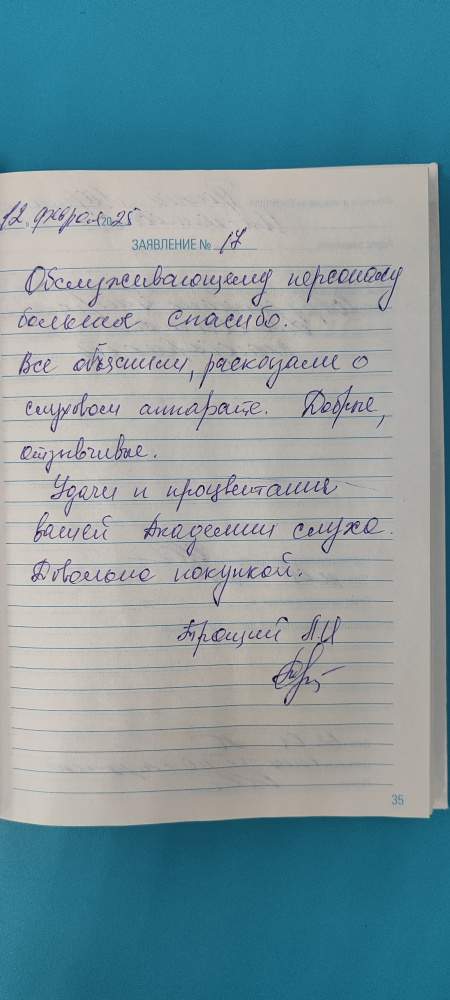 12 февраля 2025
ЗАЯВЛЕНИЕ № 17
Обслуживающему персоналу
большое спасибо.
Все объяснили, рассказали о
слуховом аппарате. Добрые,
отзывчивые.
Удачи и процветание
вашей Академии слуха.
Довольна покупкой.
35